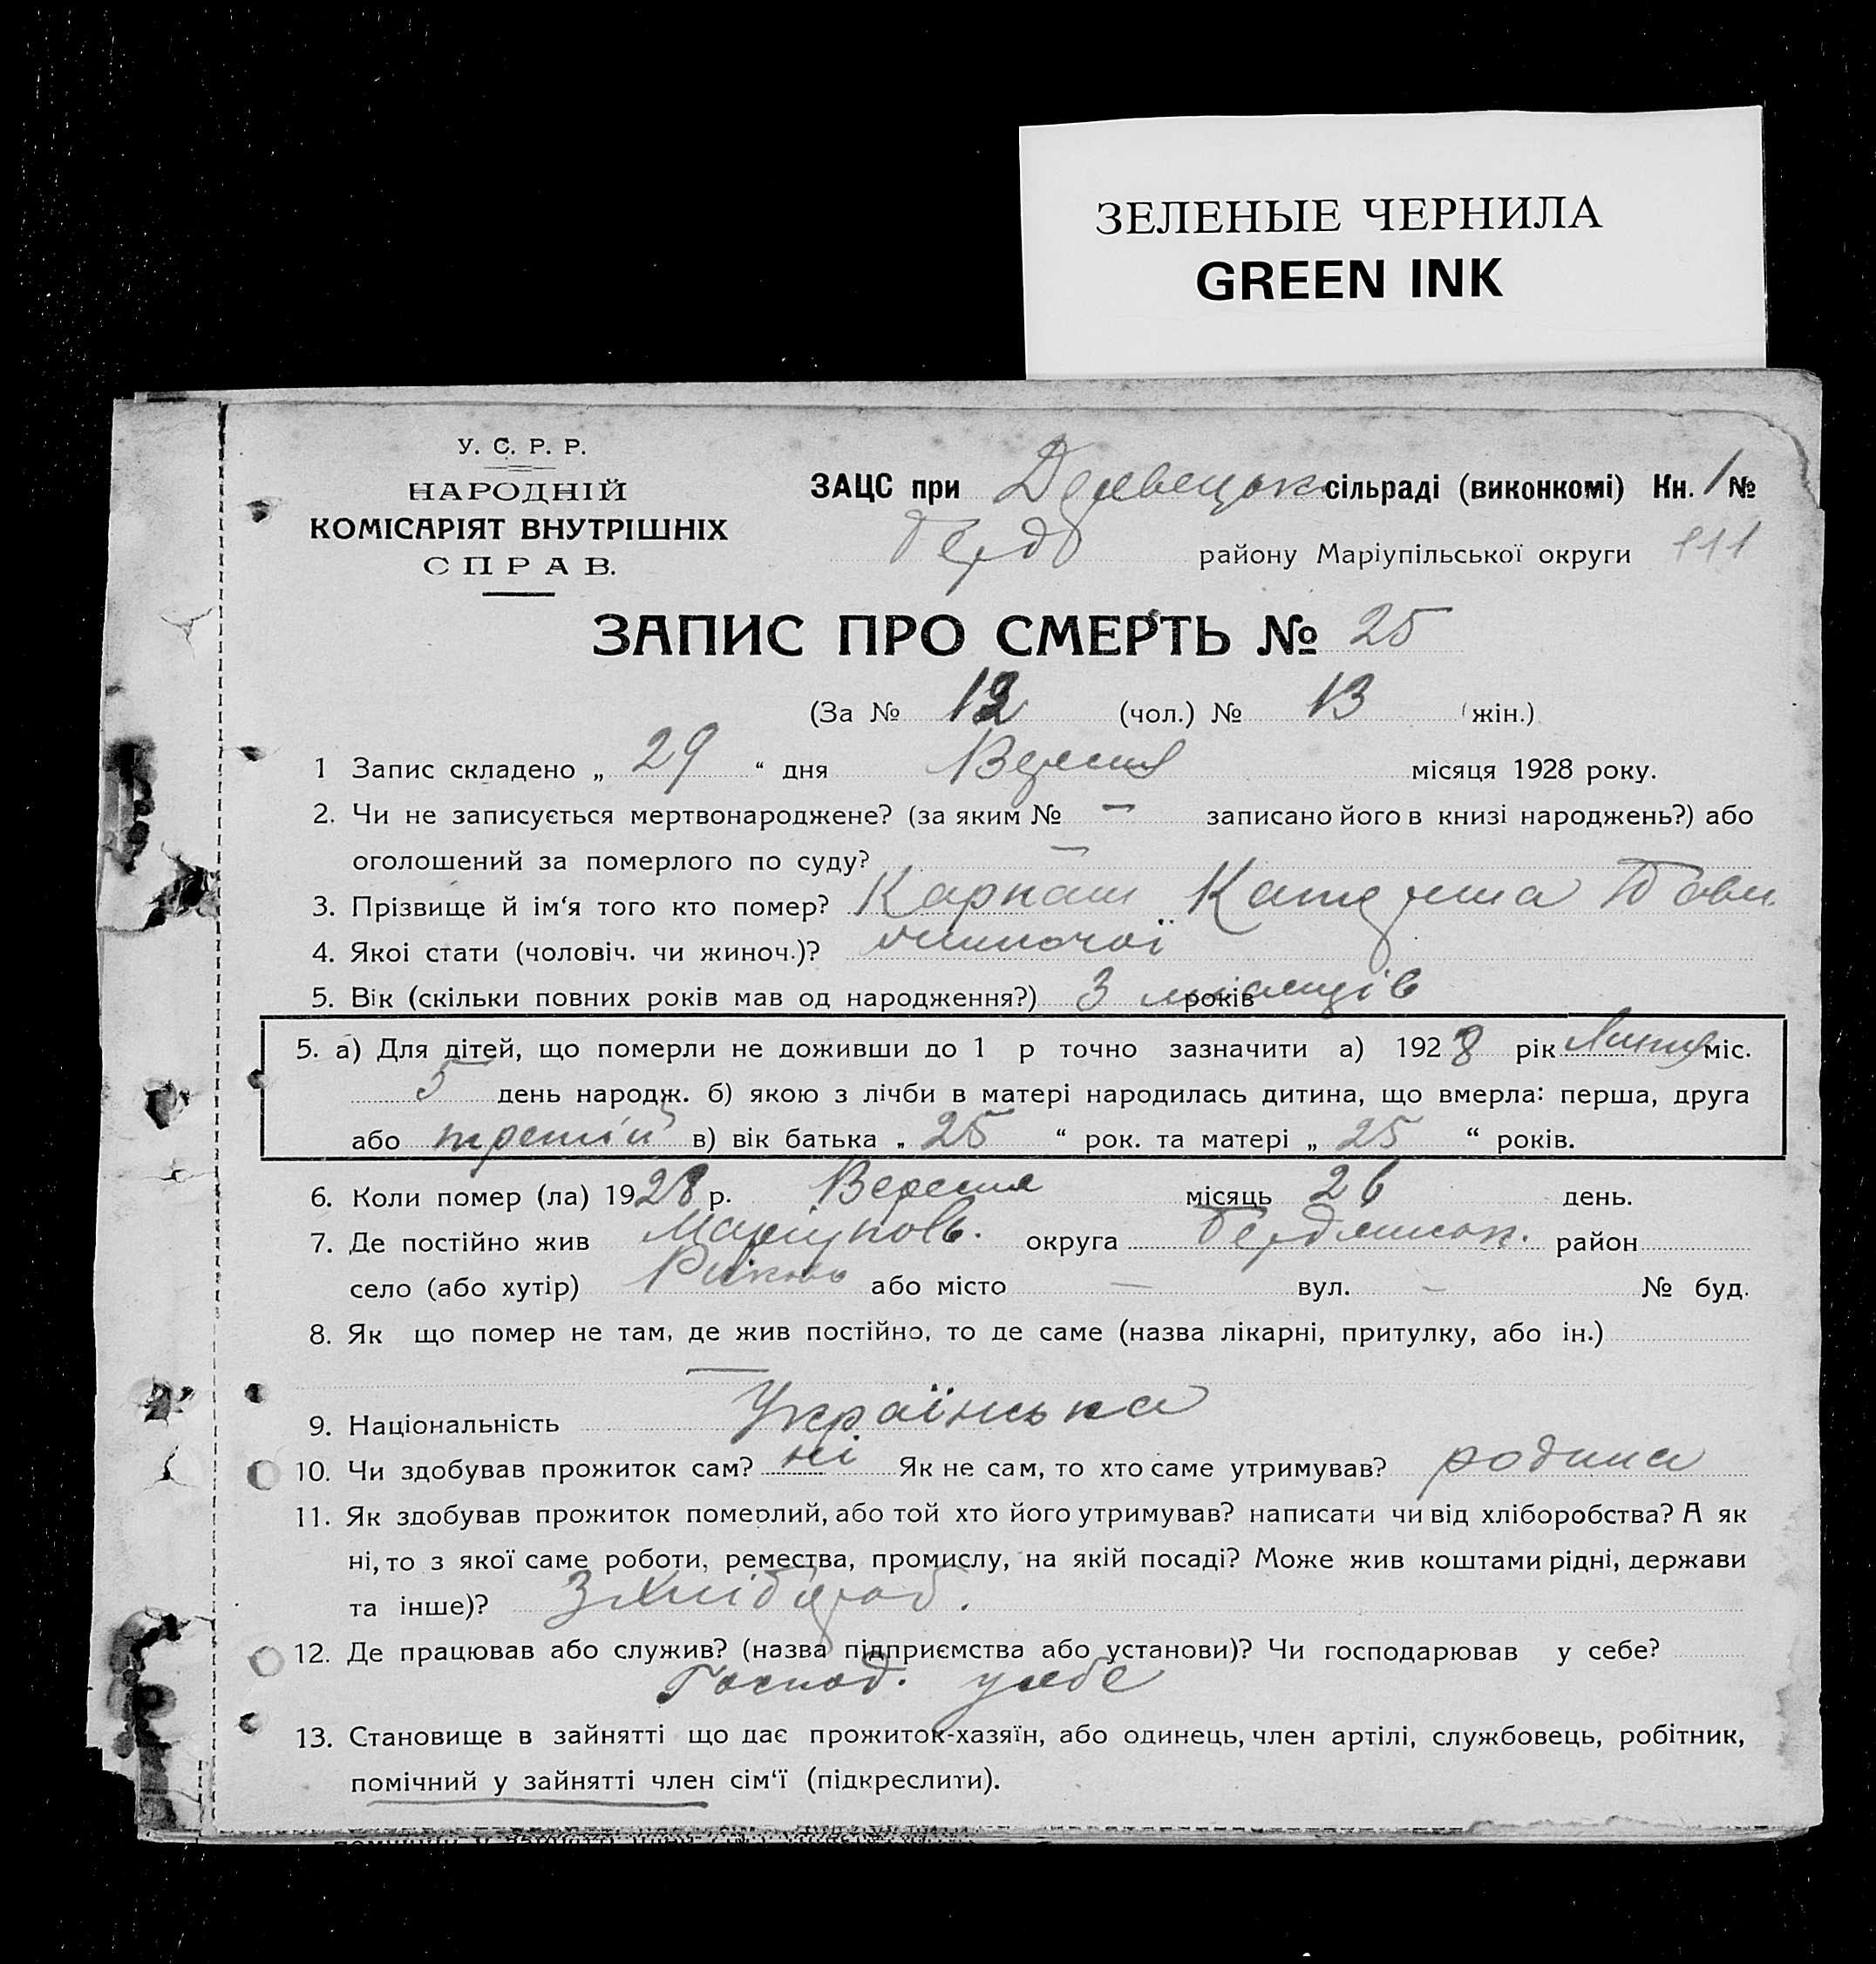 ЗЕЛЕНЫЕ ЧЕРНИЛА
GREEN INK
У. С. Р. Р.
НАРОДНІЙ
КОМІСАРІЯТ ВНУТРІШНІХ
СПРАВ.
ЗАЦС при сільраді (виконкомі) Кн. 1 №
Берд району Маріупільської округи 111
ЗАПИС ПРО СМЕРТЬ № 25
(За № 12 (чол.) № 13 (жін.)
1 Запис складено „ 29 “ дня Вересня місяця 1928 року.
2. Чи не записується мертвонароджене? (за яким № — записано його в книзі народжень?) або
оголошений за померлого по суду? —
3. Прізвище й ім‘я того кто помер? Карпаш Катерина
4. Якоі стати (чоловіч. чи жиноч.)? жиночої
5. Вік (скільки повних років мав од народження?) 3 місяців років
5. а) Для дітей, що померли не доживши до 1 р точно зазначити а) 1928 рік Липня міс.
5 день народж. б) якою з лічби в матері народилась дитина, що вмерла: перша, друга
або третій в) вік батька „ 25 “ рок. та матері „ 25 “ років.
6. Коли помер (ла) 1928 р. Вересня місяць 26 день.
7. Де постійно жив Маріуполь. округа Бердянськ. район
село (або хутір) або місто — вул. - № буд.
8. Як що помер не там, де жив постійно, то де саме (назва лікарні, притулку, або ін.)
—
9. Національність Українська
10. Чи здобував прожиток сам? ні Як не сам, то хто саме утримував? родина
11. Як здобував прожиток померлий, або той хто його утримував? написати чи від хліборобства? А як
ні, то з якої саме роботи, ремества, промислу, на якій посаді? Може жив коштами рідні, держави
та інше)? З хлібороб.
12. Де працював або служив? (назва підприємства або установи)? Чи господарював у себе?
Господ. у себе
13. Становище в зайнятті що дає прожиток-хазяїн, або одинець, член артілі, службовець, робітник,
помічний у зайнятті член сім‘ї (підкреслити).